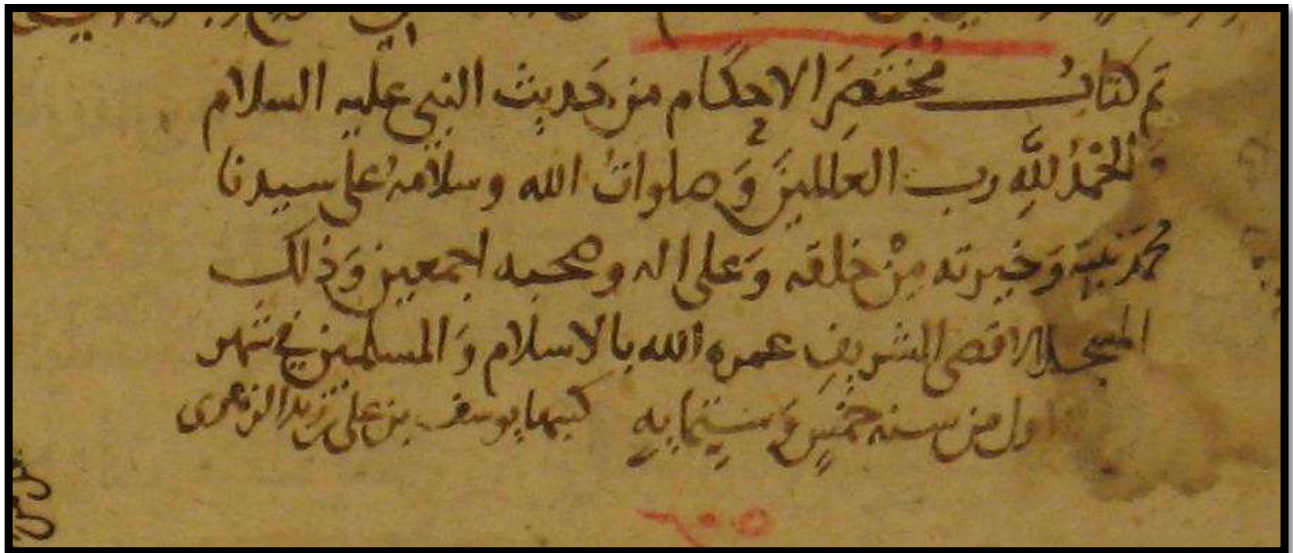 تم كتاب مختصر الاحكام من حديث النبي عليه السلام
والحمد لله رب العالمين وصلوات الله وسلامه على سيدنا
محمد نبيه وخيرته من خلقه وعلى اله وصحبه اجمعين وذلك
المسجد الاقصى الشريف عمره الله بالاسلام والمسلمين في شهر
اول من سنه خمس وستمايه كتبها يوسف بن علي بن زيد الزهرى